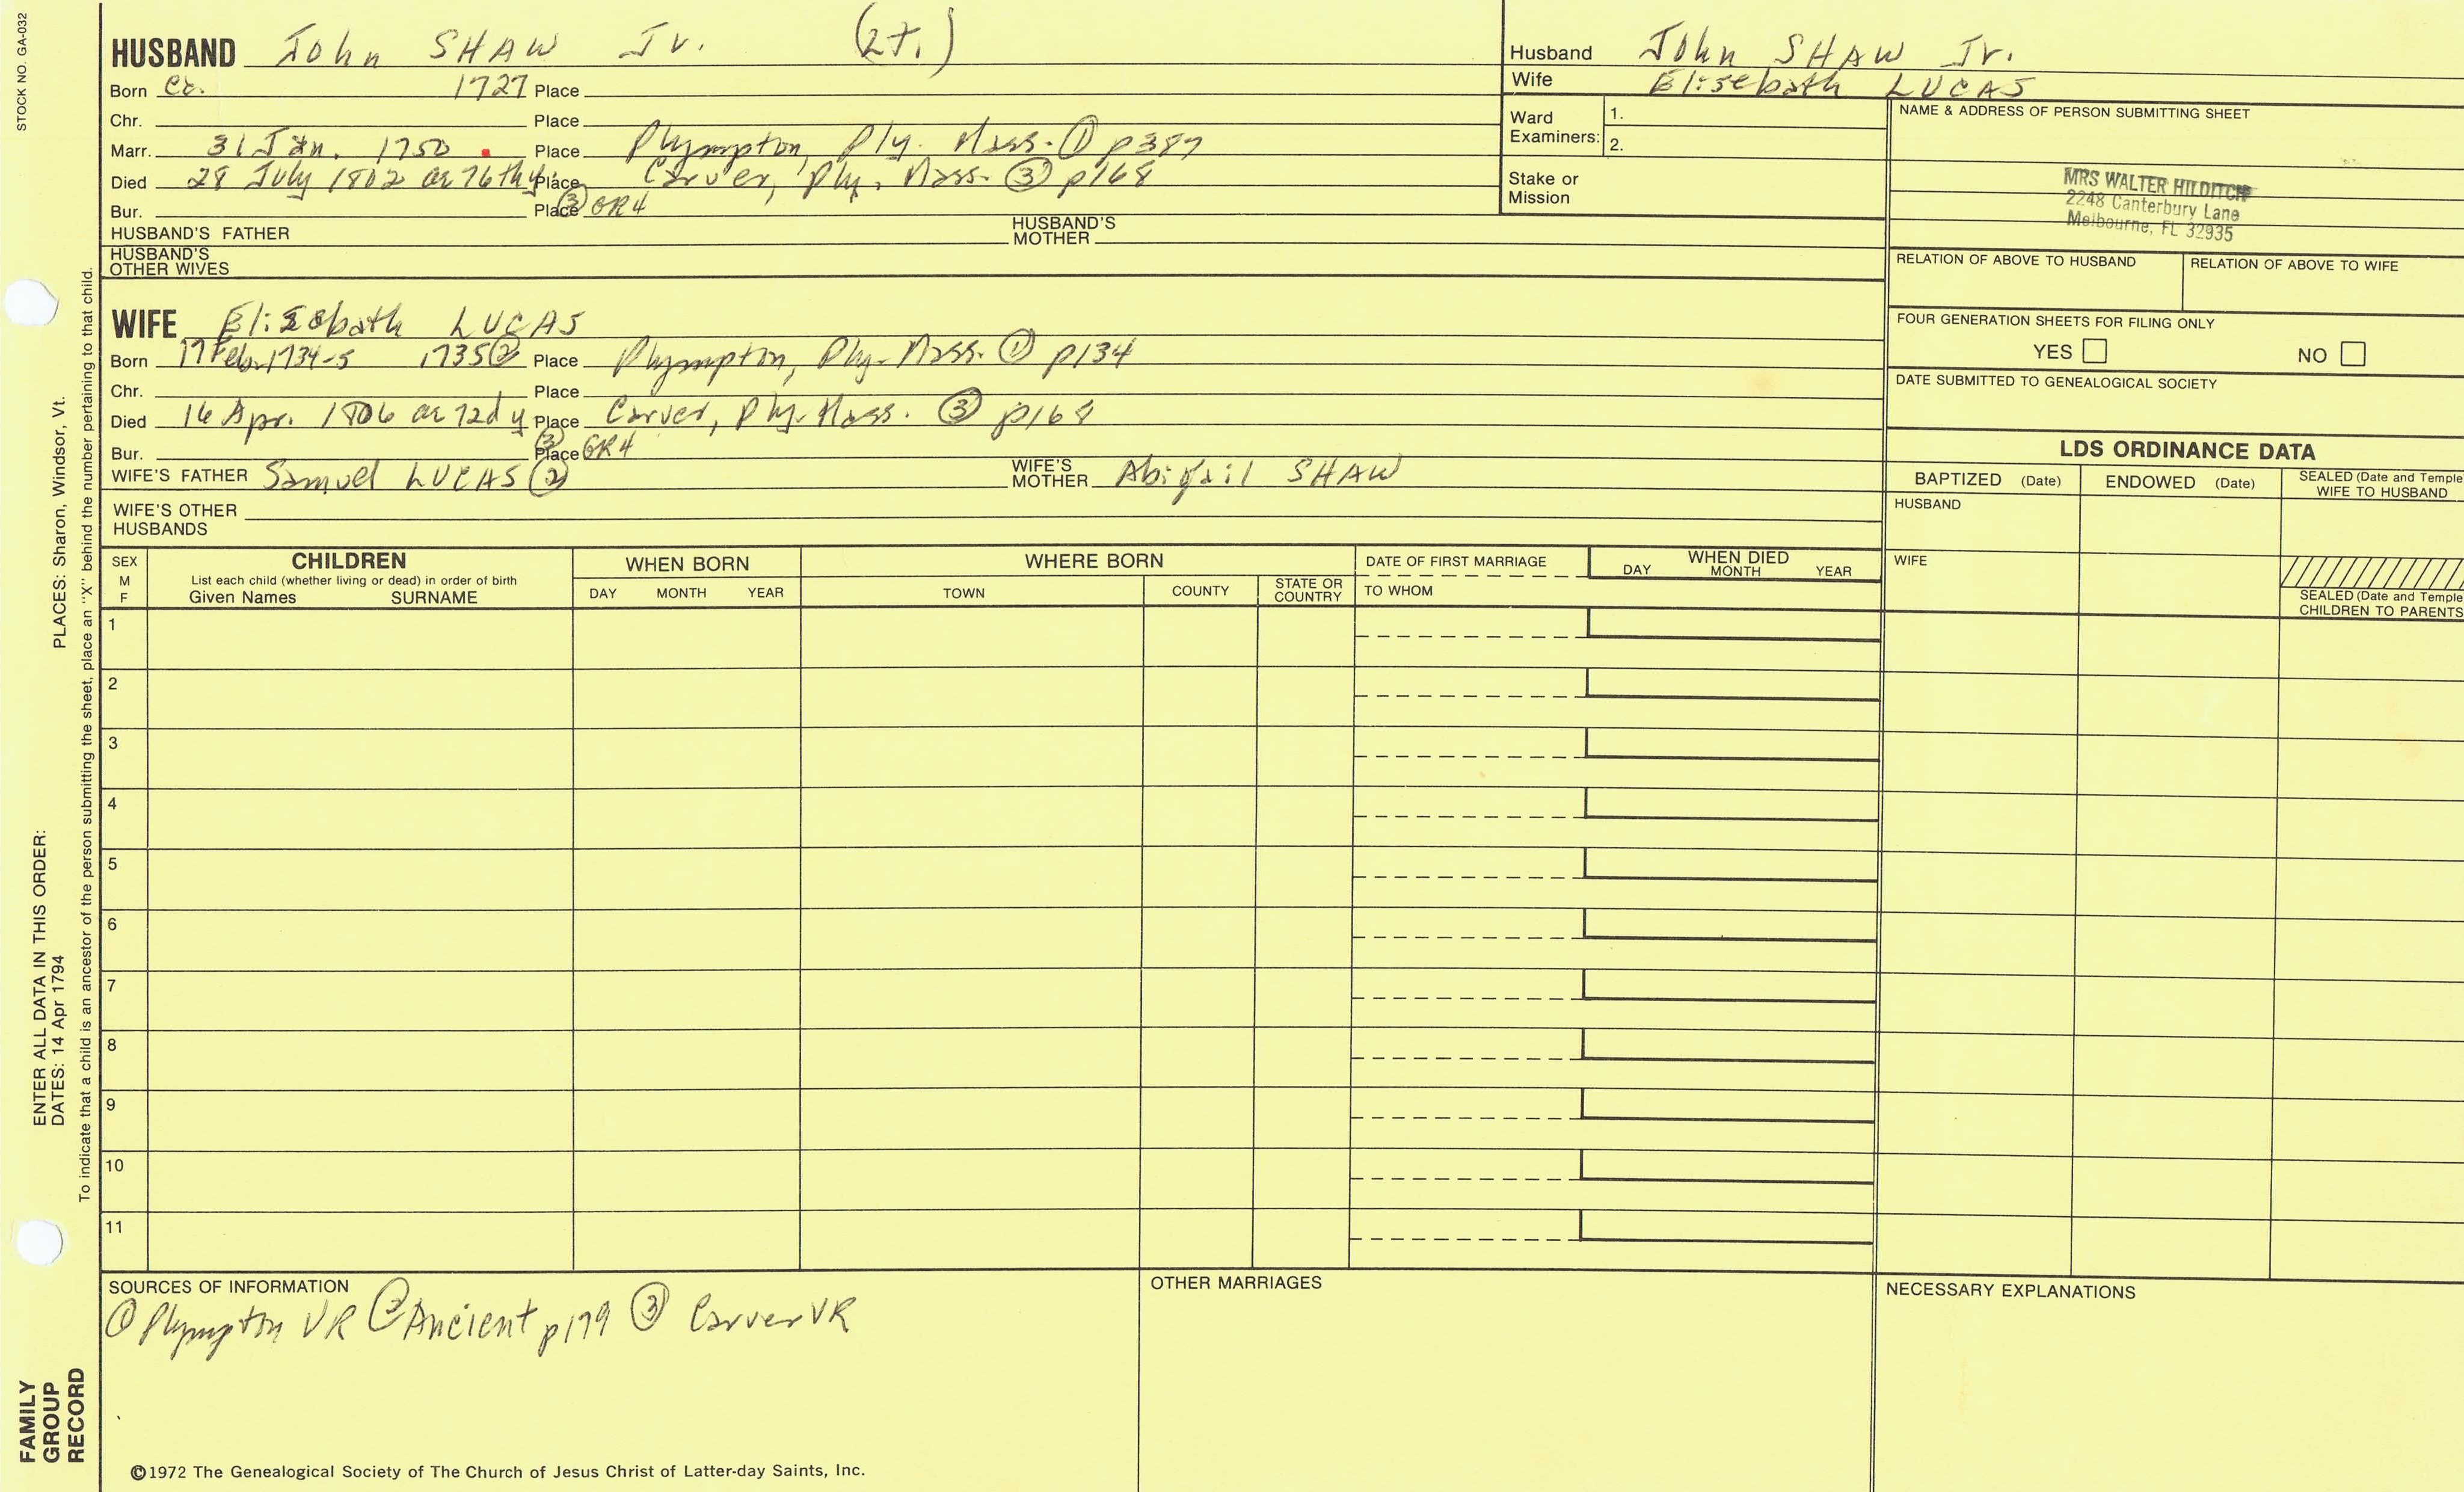 STOCK NO. GA-032
HUSBAND John SHAW Jr. (Lt.)
Born ca. 1727 Place
Chr. Place
Marr. 31 Jan. 1750 Place Plympton, Ply. Mass. ① p387
Died 28 July 1802 ae 76th y Place Carver, Ply. Mass. ③ p168
Bur. Place ③ GR4
HUSBAND'S FATHER HUSBAND'S MOTHER
HUSBAND'S OTHER WIVES
WIFE Elizabath LUCAS
Born 17 Feb. 1734-5 1735② Place Plympton, Ply. Mass. ① p134
Chr. Place
Died 16 Apr. 1806 ae 72d y Place Carver, Ply. Mass. ③ p168
Bur. Place ③ GR4
WIFE'S FATHER Samuel LUCAS ② WIFE'S MOTHER Abigail SHAW
WIFE'S OTHER HUSBANDS
Husband John SHAW Jr.
Wife Elisebath LUCAS
Ward Examiners: 1.
2.
Stake or Mission
NAME & ADDRESS OF PERSON SUBMITTING SHEET
MRS WALTER HILDITCH
2248 Canterbury Lane
Melbourne, FL 32935
RELATION OF ABOVE TO HUSBAND RELATION OF ABOVE TO WIFE
FOUR GENERATION SHEETS FOR FILING ONLY
YES NO
DATE SUBMITTED TO GENEALOGICAL SOCIETY
LDS ORDINANCE DATA
BAPTIZED (Date) ENDOWED (Date) SEALED (Date and Temple WIFE TO HUSBAND
HUSBAND
WIFE
SEALED (Date and Temple CHILDREN TO PARENTS
SEX M F
CHILDREN
List each child (whether living or dead) in order of birth
Given Names SURNAME
WHEN BORN
DAY MONTH YEAR
WHERE BORN
TOWN COUNTY STATE OR COUNTRY
DATE OF FIRST MARRIAGE
TO WHOM
WHEN DIED
DAY MONTH YEAR
1
2
3
4
5
6
7
8
9
10
11
SOURCES OF INFORMATION
① Plympton VR ② Ancient p179 ③ Carver VR
OTHER MARRIAGES
NECESSARY EXPLANATIONS
©1972 The Genealogical Society of The Church of Jesus Christ of Latter-day Saints, Inc.
FAMILY
GROUP
RECORD
ENTER ALL DATA IN THIS ORDER:
DATES: 14 Apr 1794 PLACES: Sharon, Windsor, Vt.
To indicate that a child is an ancestor of the person submitting the sheet, place an "X" behind the number pertaining to that child.